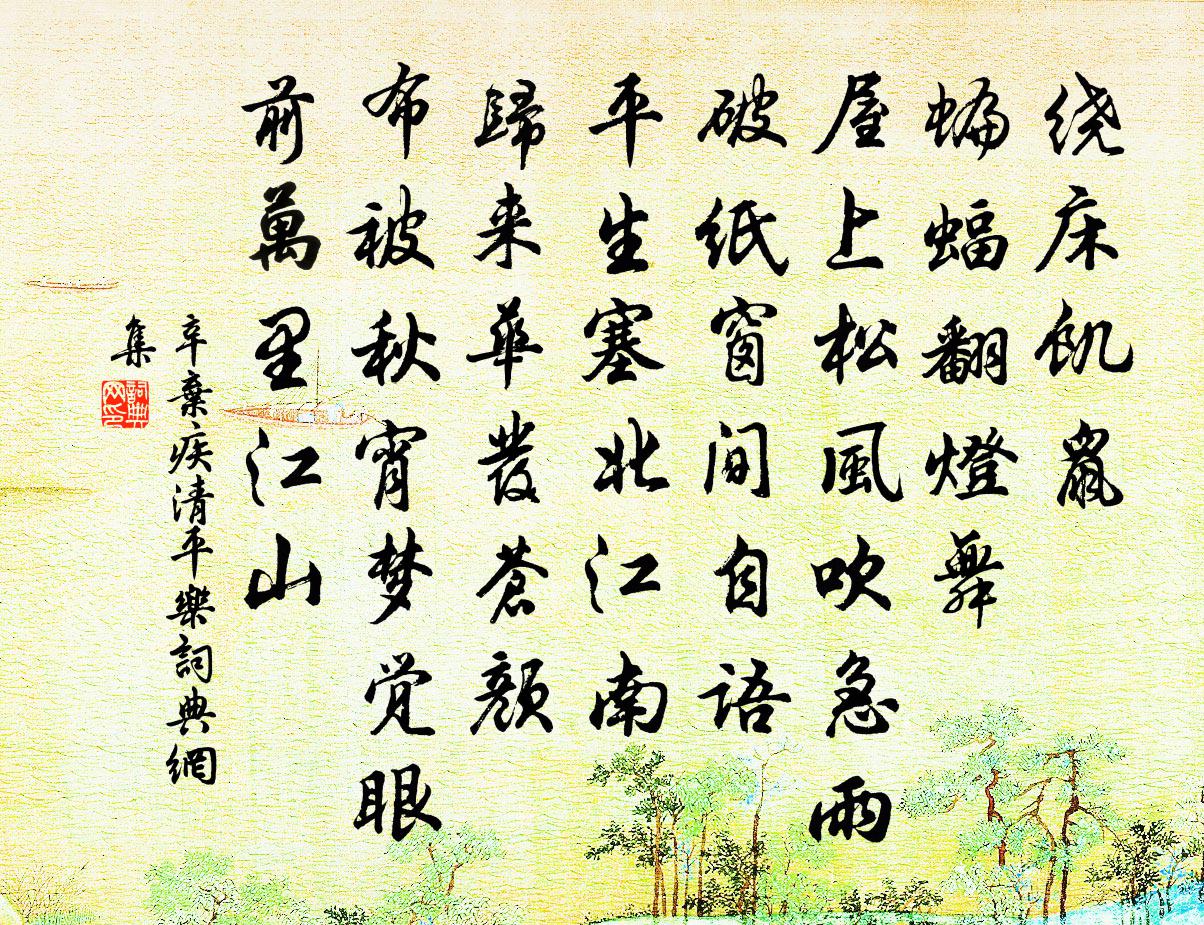 绕床飢鼠
蝙蝠翻燈舞
屋上松風吹急雨
破紙窗間自語
平生塞北江南
歸来華發蒼顔
布被秋宵梦觉眼
前萬里江山
辛棄疾清平樂詞典網
集
詞典网印